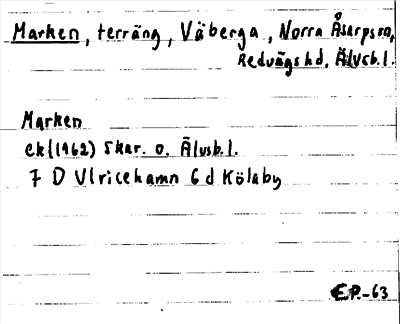 Marken, terräng, Väberga, Norra Åsarps sn,
Redvägs hd, Älvsb.l.
Marken
ek (1962) Skar. o. Älvsb.l.
7 D Ulricehamn 6 d Kölaby
E.P.-63